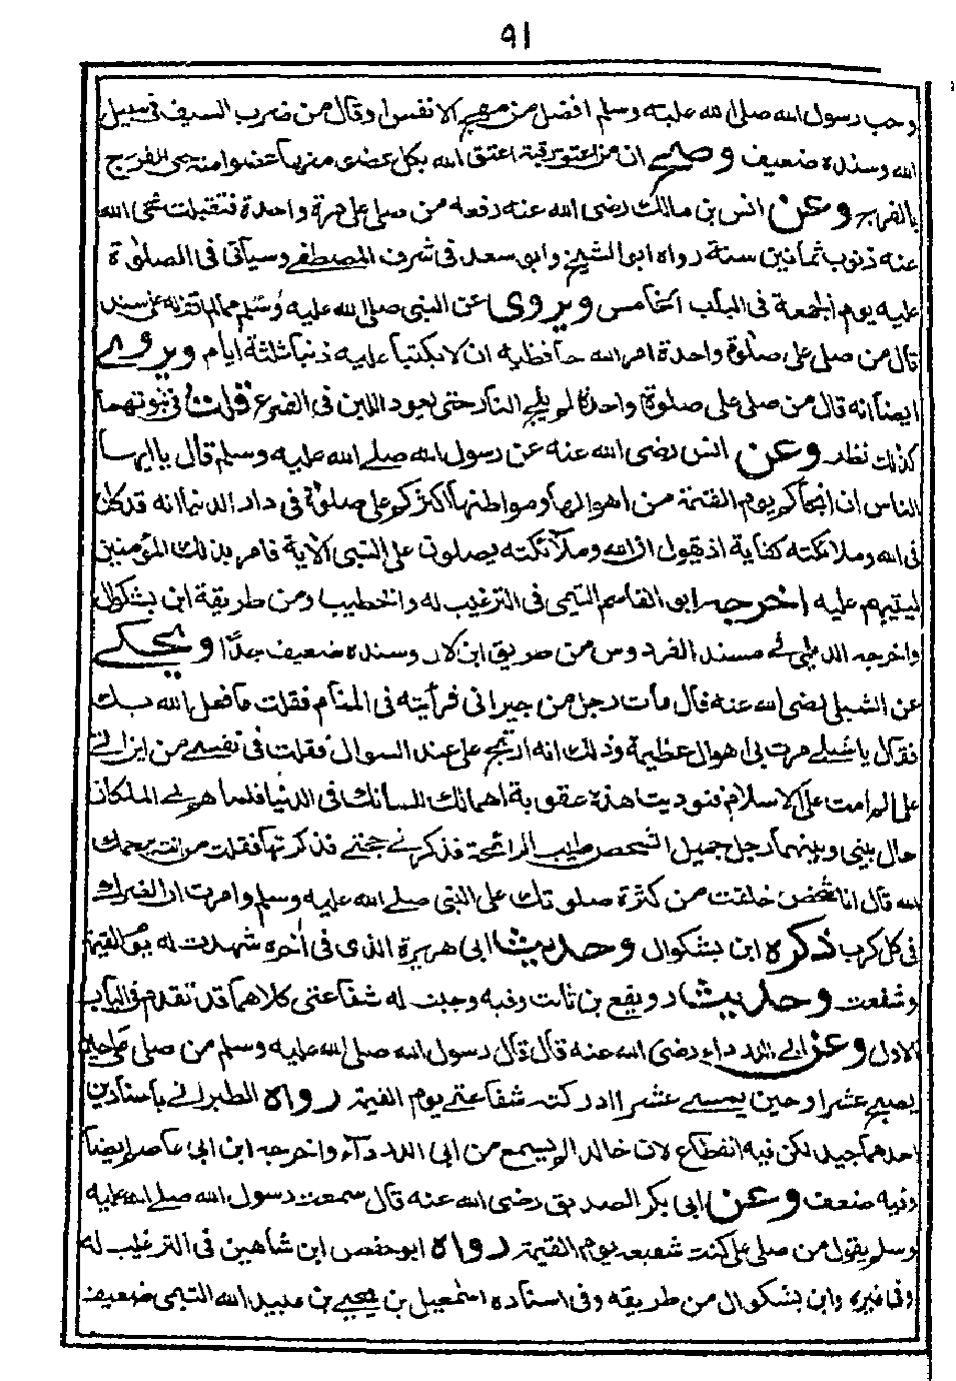 ٩١
وحب رسول الله صلى الله عليه وسلم افضل من مهج الانفس او قال من ضرب السيف فى سبيل
الله وسنده ضعيف وصح ان من اعتق رقبة اعتق الله بكل عضو منها عضوا منه حتى الفرج
بالفرج وعن انس بن مالك رضى الله عنه رفعه من صلى على مرة واحدة فتقبلت محى الله
عنه ذنوب ثمانين سنة رواه ابو الشيخ وابو سعد فى شرف المصطفے وسياتى فى الصلوٰة
عليه يوم الجمعة فى الباب الخامس ويروى عن النبى صلى الله عليه وسلم مما لم اقف له على سند
قال من صلى على صلوة واحدة امر الله حافظيه ان لا يكتبا عليه ذنبا ثلثة ايام ويروے
ايضا انه قال من صلى على صلوة واحدة لم يلج النار حتى يعود اللبن فى الضرع قلت فى ثبوتهما
كذلك نظر وعن انس رضى الله عنه عن رسول الله صلے الله عليه وسلم قال يا ايها
الناس ان انجاكم يوم القيمة من اهوالها ومواطنها اكثركم على صلوة فى دار الدنيا انه قد كان
فى الله وملائكته كفاية اذ يقول ان الله وملآئكته يصلون على النبى الاية فامر بذلك المؤمنين
ليثيبهم عليه اخرجه ابو القاسم التيمى فى الترغيب له والخطيب ومن طريقة ابن بشكوال
واخرجه الديلمى فے مسند الفردوس من طريق ابن لال وسنده ضعيف جدًا ويحكے
عن الشبلى رضى الله عنه قال مات رجل من جيرانى فرأيته فى المنام فقلت ما فعل الله بك
فقال يا شبلے مرت بى اهوال عظيمة وذلك انه ارتج على عند السوال فقلت فى نفسے من اين اتے
على الم امت على الاسلام فنوديت هذه عقوبة اهمالك للسانك فى الدنيا فلما هم بے الملكان
حال بينى وبينهما رجل جميل الشخص طيب الرائحة فذكرنے حجتے فذكرتها فقلت من انت يرحمك
الله قال انا شخص خلقت من كثرة صلوتك على النبى صلے الله عليه وسلم وامرت ان انصرك
فى كل كرب ذكره ابن بشكوال وحديث ابى هريرة الذى فى اخره شهدت له يوم القيمة
وشفعت وحديث رويفع بن ثابت وفيه وجبت له شفاعتى كلاهما قد تقدم فى الباب
الاول وعن ابے الدرداء رضى الله عنه قال قال رسول الله صلى الله عليه وسلم من صلى على حين
يصبح عشرا وحين يمسے عشرا ادركته شفاعتے يوم القيمة رواه الطبرانے باسنادين
احدهما جيد لكن فيه انقطاع لان خالد الم يسمع من ابى الدرداء واخرجه ابن ابى عاصم ايضا
وفيه ضعف وعن ابى بكر الصديق رضى الله عنه قال سمعت رسول الله صلے الله عليه
وسلم يقول من صلى على كنت شفيعه يوم القيمة رواه ابو حفص ابن شاهين فى الترغيب له
وفى غيره وابن بشكوال من طريقه وفى اسناده اسمعيل بن يحيے بن عبيد الله التيمى ضعيف